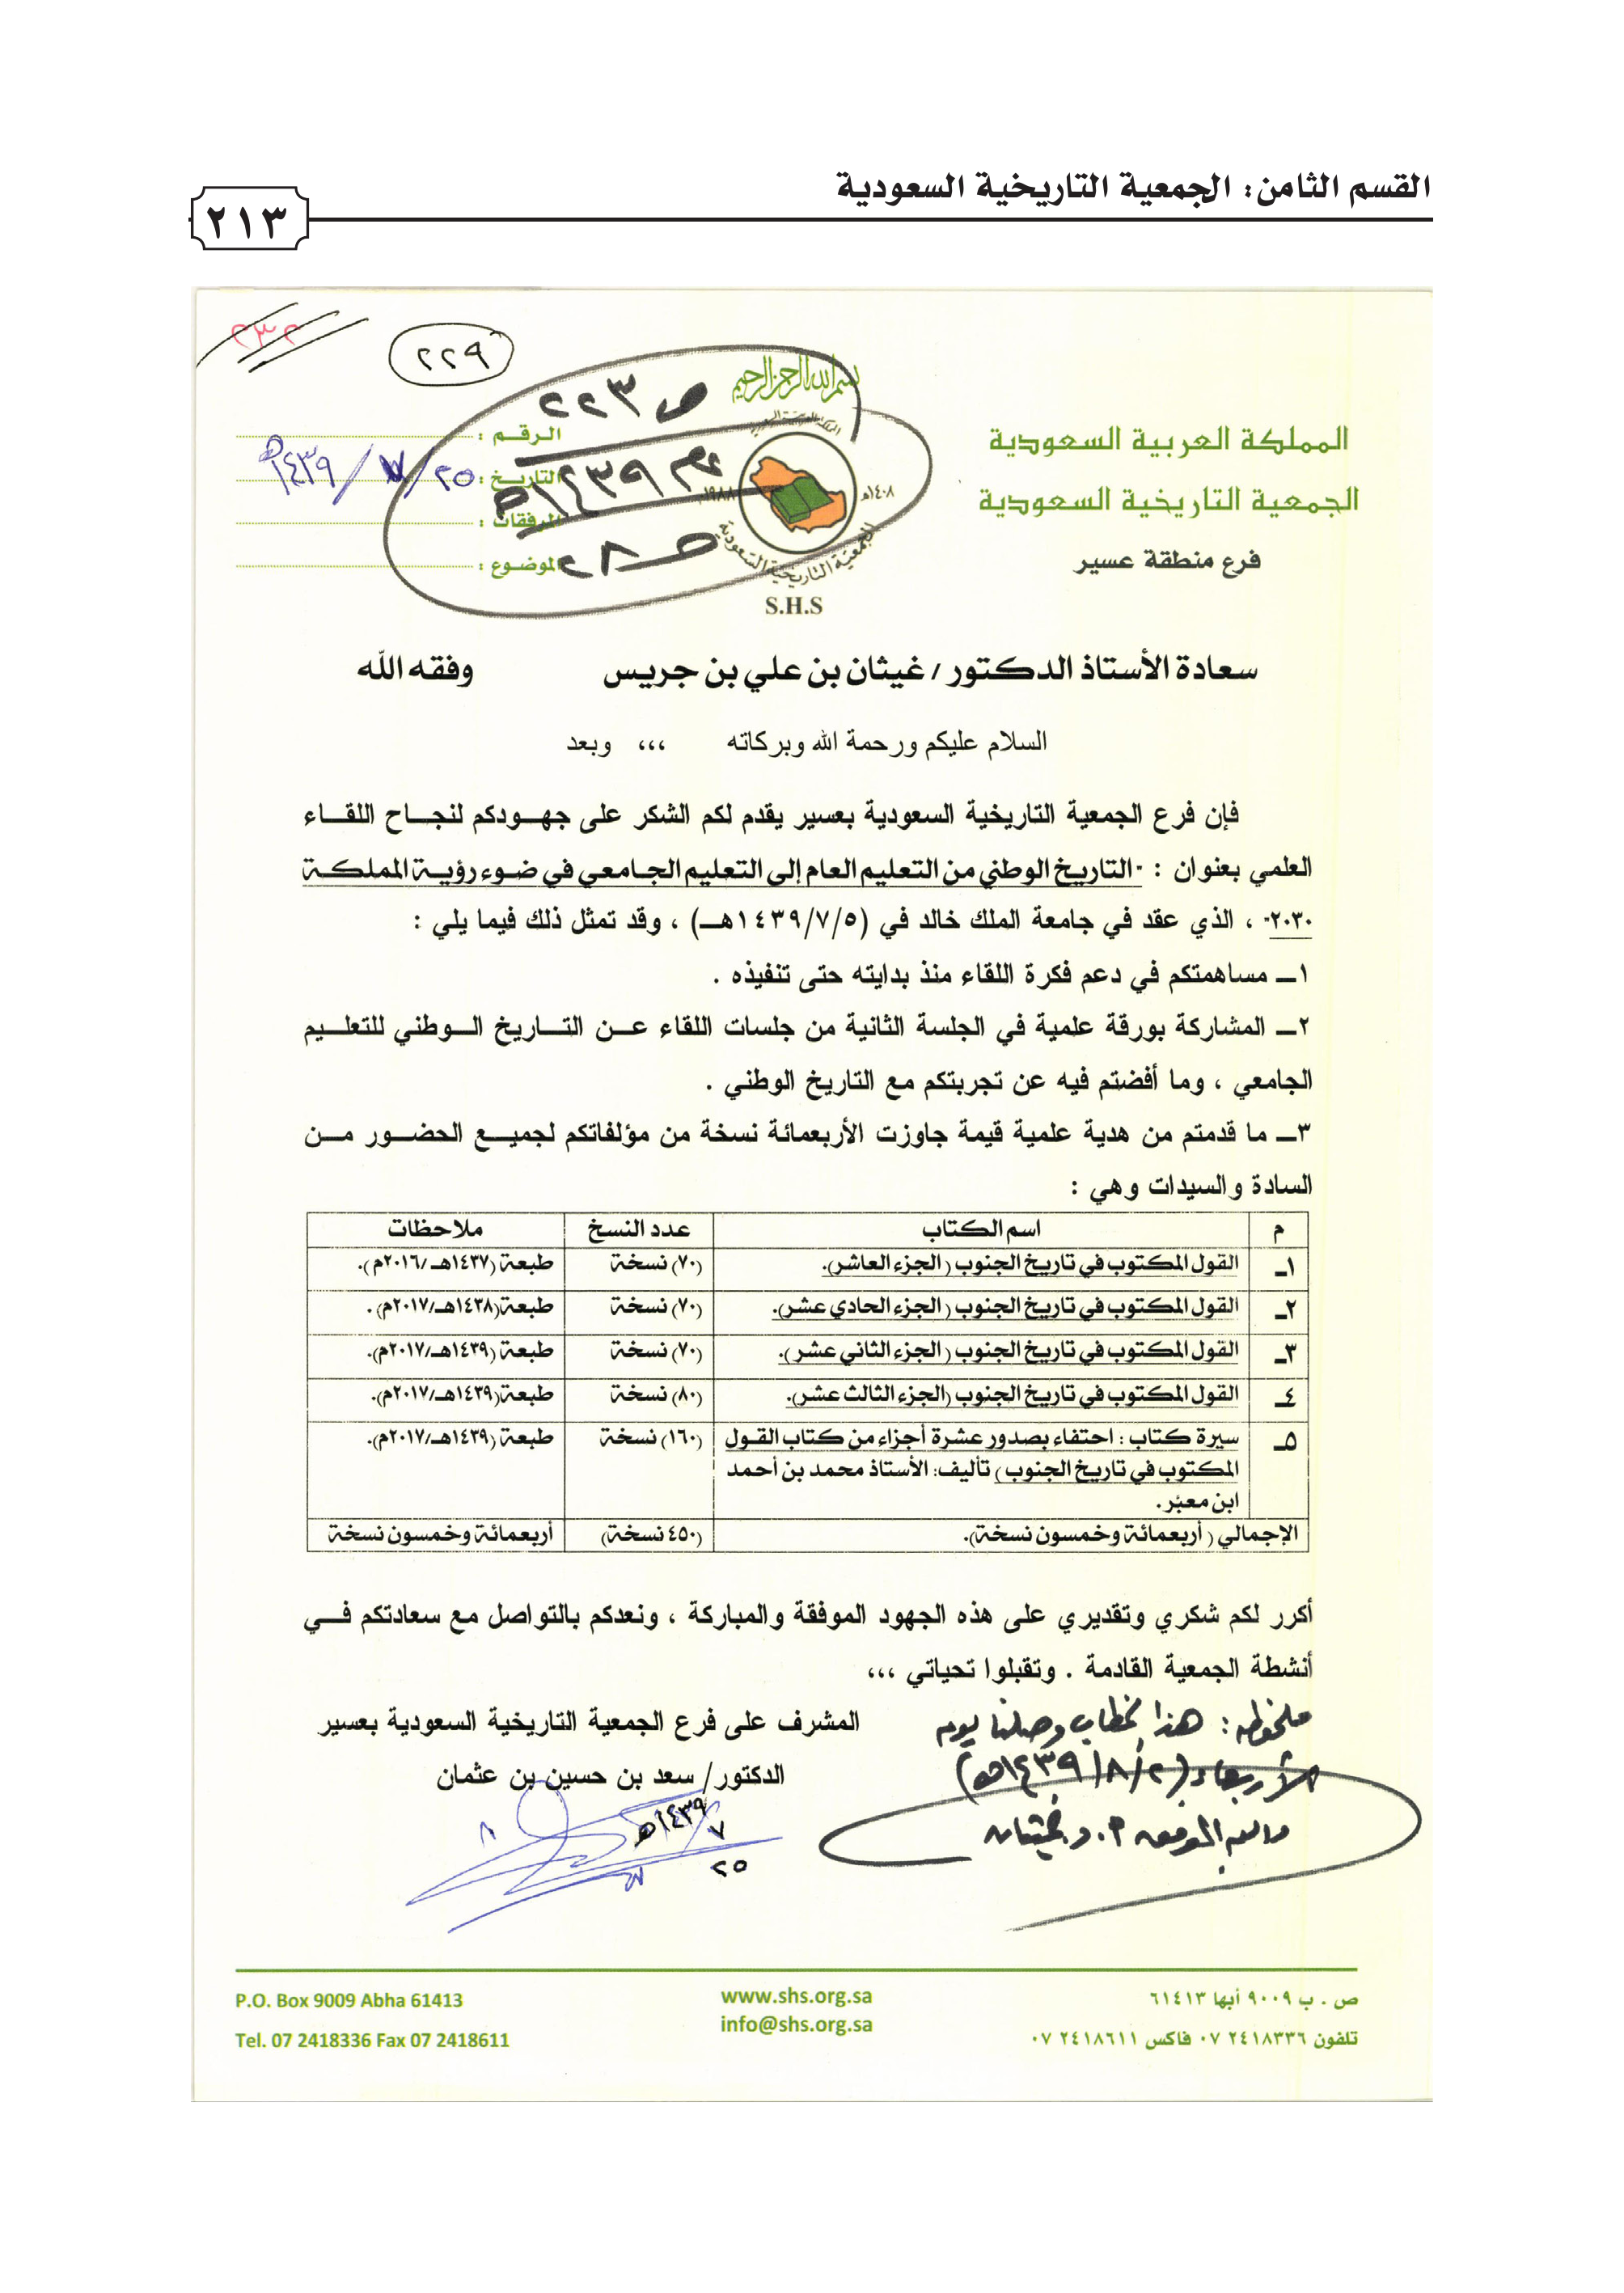 القسم الثامن: الجمعية التاريخية السعودية
٢١٣
٢٣٢
٢٢٩
بسم الله الرحمن الرحيم
المملكة العربية السعودية
الجمعية التاريخية السعودية
فرع منطقة عسير
١٤٠٨هـ
١٩٨٨
الجمعية التاريخية السعودية
S.H.S
ص ٢٢٣
١٤٣٩هـ
الرقم :
التاريخ : ٢٥/٧/١٤٣٩هـ
المرفقات :
الموضوع :
سعادة الأستاذ الدكتور/ غيثان بن علي بن جريس وفقه الله
السلام عليكم ورحمة الله وبركاته ،،، وبعد
فإن فرع الجمعية التاريخية السعودية بعسير يقدم لكم الشكر على جهودكم لنجاح اللقاء
العلمي بعنوان : "التاريخ الوطني من التعليم العام إلى التعليم الجامعي في ضوء رؤية المملكة
٢٠٣٠" ، الذي عقد في جامعة الملك خالد في (١٤٣٩/٧/٥هـ) ، وقد تمثل ذلك فيما يلي :
١ـ مساهمتكم في دعم فكرة اللقاء منذ بدايته حتى تنفيذه .
٢ـ المشاركة بورقة علمية في الجلسة الثانية من جلسات اللقاء عن التاريخ الوطني للتعليم
الجامعي ، وما أفضتم فيه عن تجربتكم مع التاريخ الوطني .
٣ـ ما قدمتم من هدية علمية قيمة جاوزت الأربعمائة نسخة من مؤلفاتكم لجميع الحضور من
السادة والسيدات وهي :
م اسم الكتاب عدد النسخ ملاحظات
١ـ القول المكتوب في تاريخ الجنوب (الجزء العاشر). (٧٠) نسخة طبعة (١٤٣٧هـ/٢٠١٦م).
٢ـ القول المكتوب في تاريخ الجنوب (الجزء الحادي عشر). (٧٠) نسخة طبعة(١٤٣٨هـ/٢٠١٧م).
٣ـ القول المكتوب في تاريخ الجنوب (الجزء الثاني عشر). (٧٠) نسخة طبعة (١٤٣٩هـ/٢٠١٧م).
٤ـ القول المكتوب في تاريخ الجنوب (الجزء الثالث عشر). (٨٠) نسخة طبعة(١٤٣٩هـ/٢٠١٧م).
٥ـ سيرة كتاب : احتفاء بصدور عشرة أجزاء من كتاب القول (١٦٠) نسخة طبعة (١٤٣٩هـ/٢٠١٧م).
المكتوب في تاريخ الجنوب) تأليف: الأستاذ محمد بن أحمد
ابن معبّر.
الإجمالي (أربعمائة وخمسون نسخة). (٤٥٠ نسخة) أربعمائة وخمسون نسخة
أكرر لكم شكري وتقديري على هذه الجهود الموفقة والمباركة ، ونعدكم بالتواصل مع سعادتكم في
أنشطة الجمعية القادمة . وتقبلوا تحياتي ،،،
المشرف على فرع الجمعية التاريخية السعودية بعسير
الدكتور/ سعد بن حسين بن عثمان
١٤٣٩هـ
٧
٢٥
ملحوظة: هذا الخطاب وصلنا يوم
الأربعاء (١٤٣٩/٨/٢هـ)
والله الموفق أ.د. غيثان
ص . ب ٩٠٠٩ أبها ٦١٤١٣
تلفون ٢٤١٨٣٣٦ ٠٧ فاكس ٢٤١٨٦١١ ٠٧
www.shs.org.sa
info@shs.org.sa
P.O. Box 9009 Abha 61413
Tel. 07 2418336 Fax 07 2418611